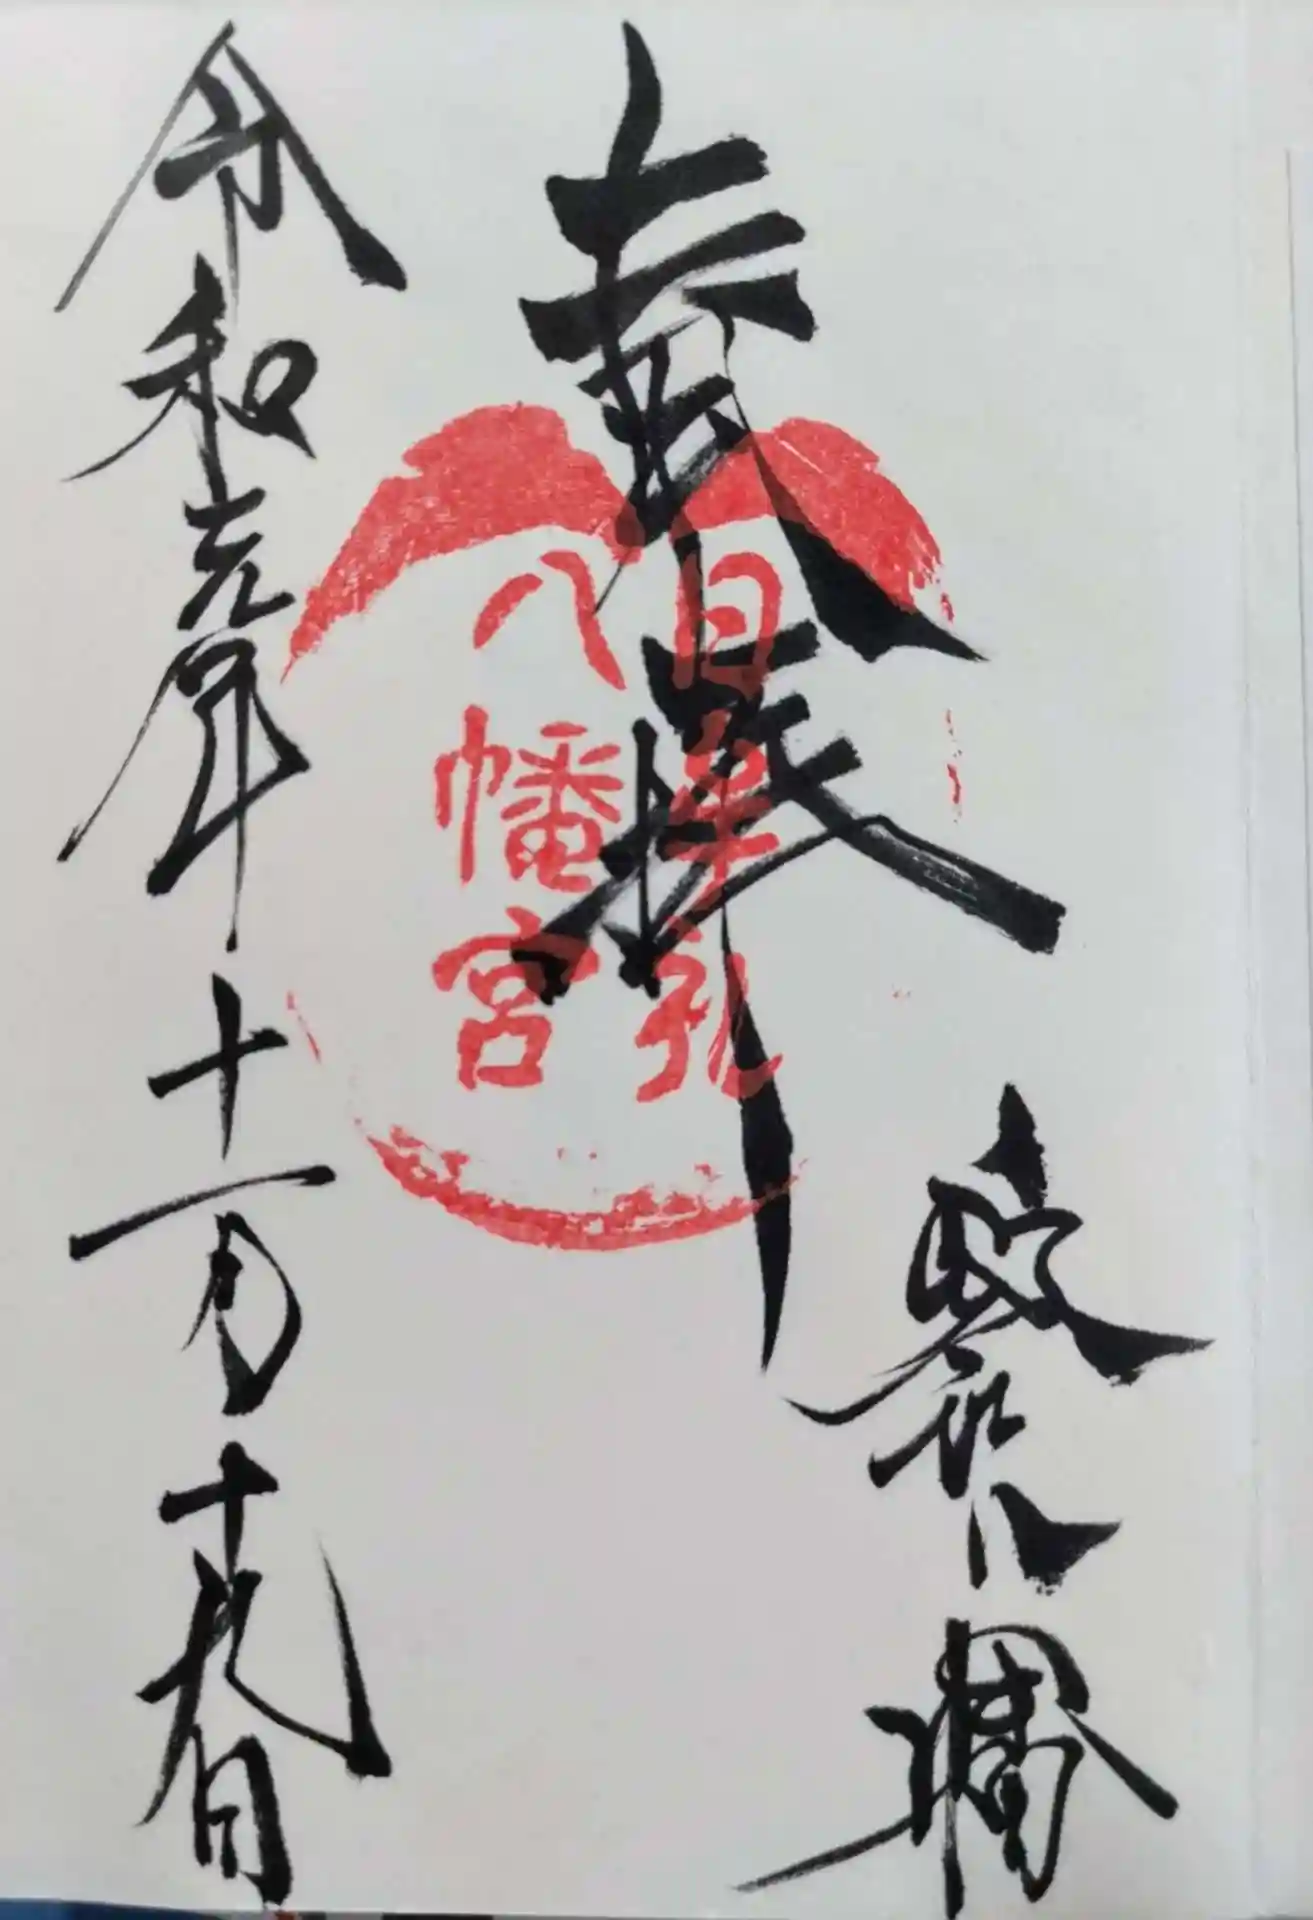 奉拝
日牟礼
八幡宮
令和元年十一月十九日